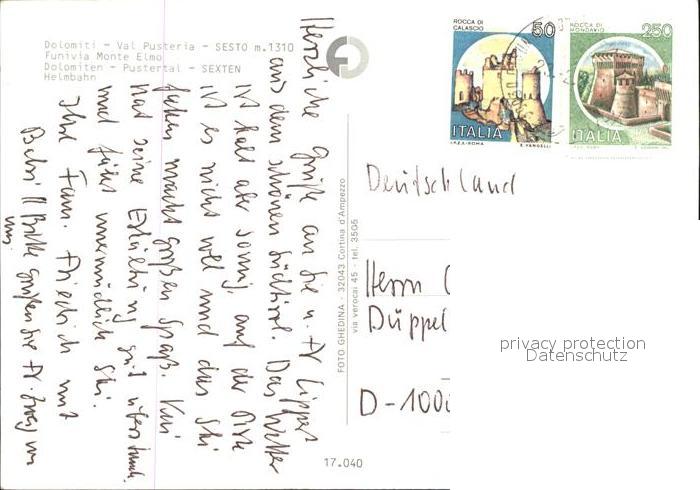 Dolomiti - Val Pusteria - SESTO m.1310
Funivia Monte Elmo
Dolomiten - Pustertal - SEXTEN
Helmbahn
Herzliche Grüße an Sie u. Fr Lippert
aus dem schönen Südtirol. Das Wetter
ist kalt aber sonnig, auf der Piste
ist es nicht voll und das Ski
fahren macht großen Spaß. Kai
hat seine Erkältung gut überstanden
und fährt unermüdlich Ski.
Ihre Fam. Friedrich mit
Babsi || Bitte grüßen Sie Fr.
uns
FOTO GHEDINA - 32043 Cortina d'Ampezzo
via verocai 45 - tel. 3505
17.040
ROCCA DI
CALASCIO
50
ITALIA
I.P.Z.S.-ROMA E. VANGELLI
ROCCA DI
MONDAVIO
250
ITALIA
Deutschland
Herrn
Düppel
D-100
privacy protection
Datenschutz